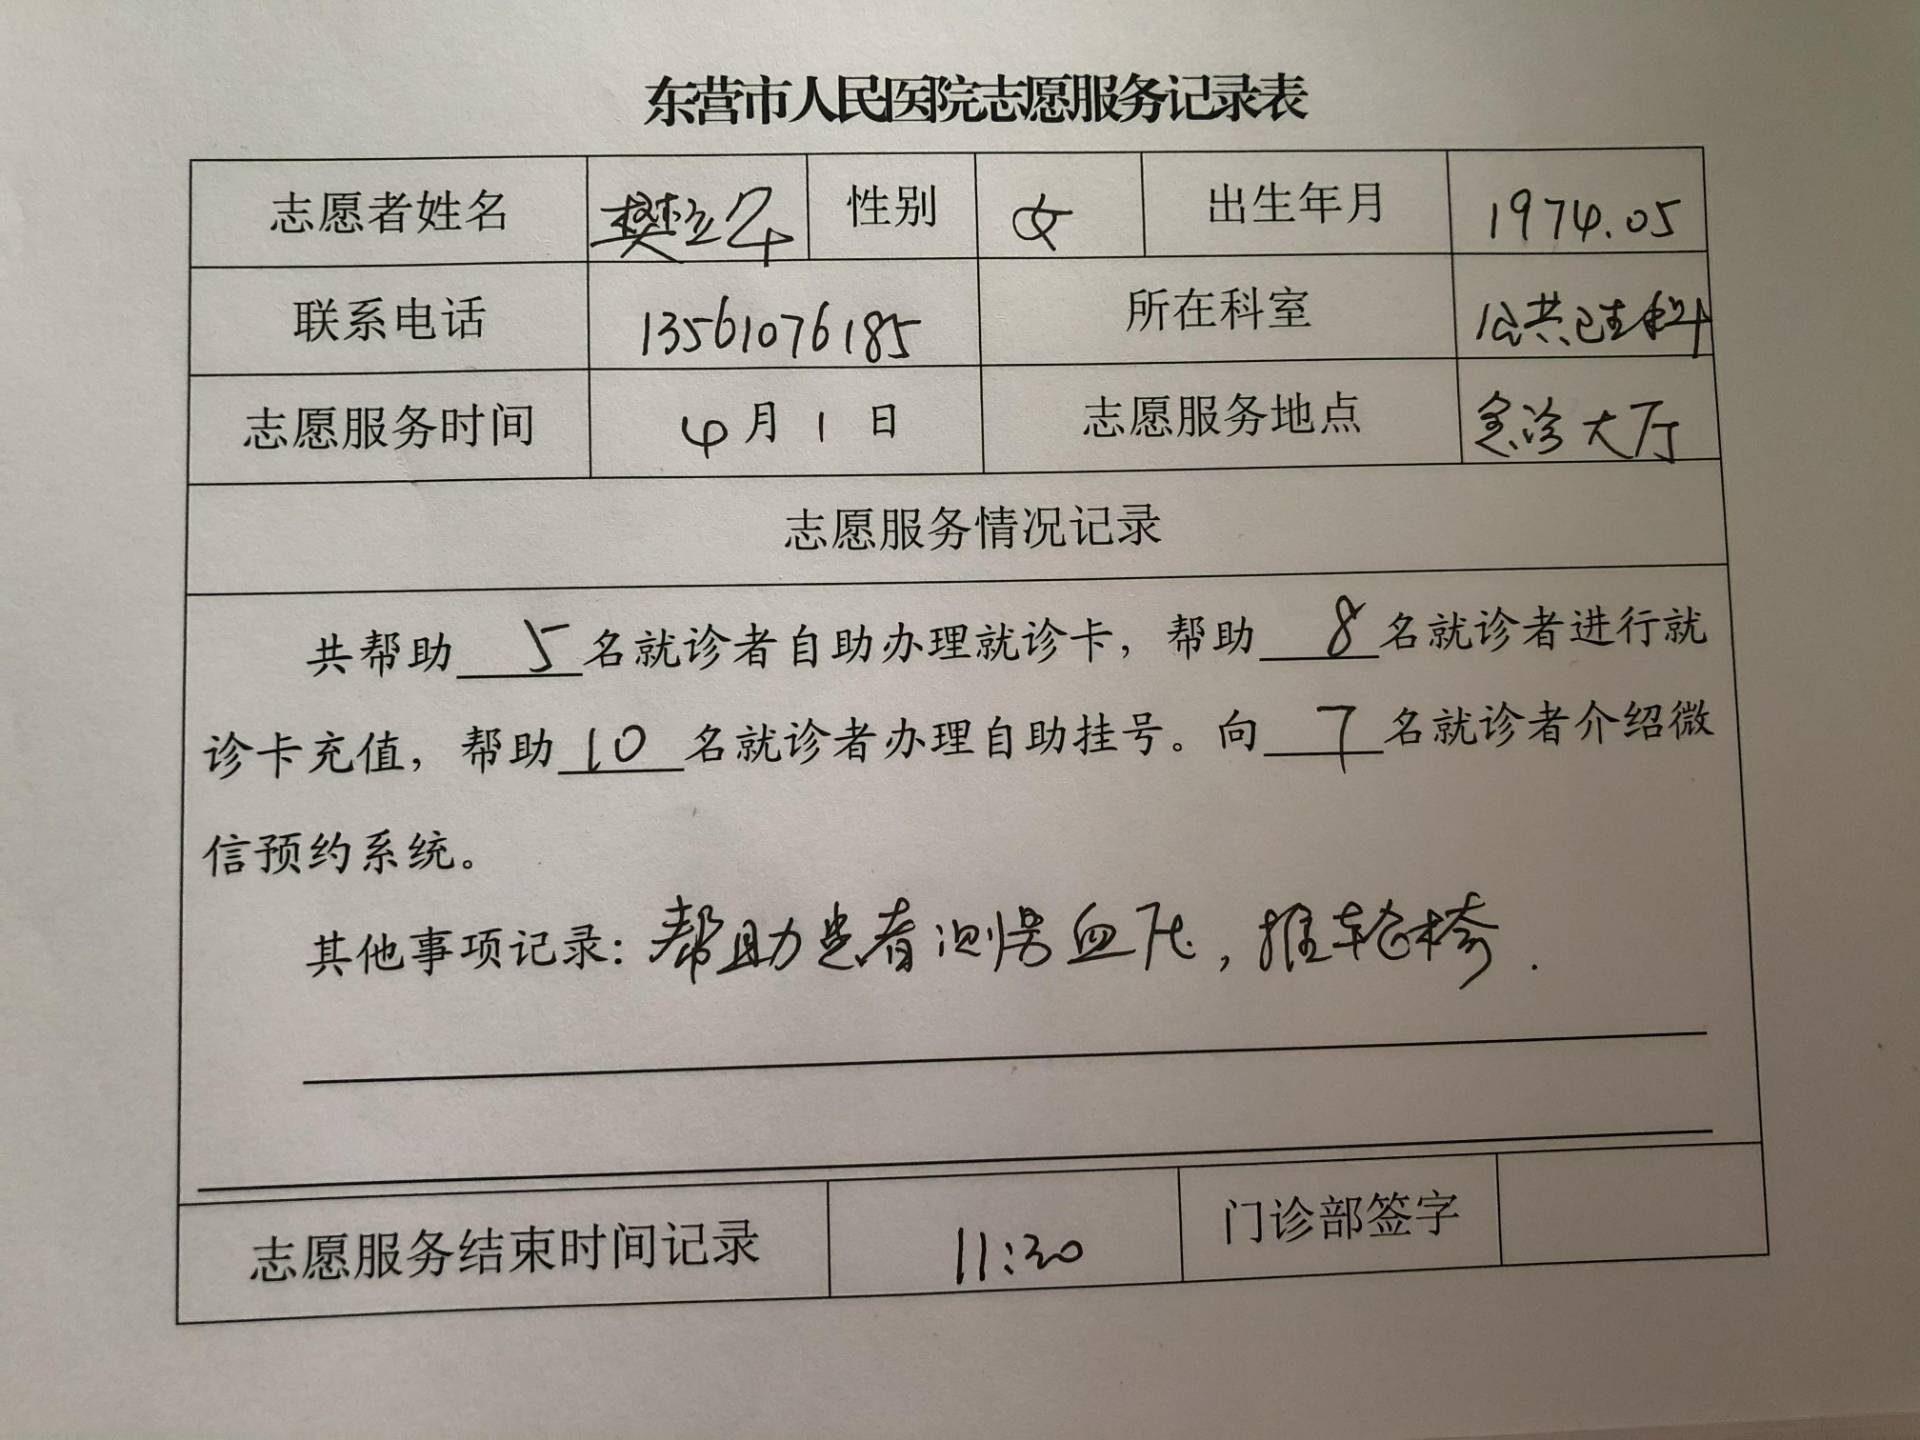 东营市人民医院志愿服务记录表
志愿者姓名 樊 性别 女 出生年月 1974.05
联系电话 13561076185 所在科室 公共卫生科
志愿服务时间 4月1日 志愿服务地点 急诊大厅
志愿服务情况记录
共帮助 5 名就诊者自助办理就诊卡，帮助 8 名就诊者进行就
诊卡充值，帮助 10 名就诊者办理自助挂号。向 7 名就诊者介绍微
信预约系统。
其他事项记录：帮助患者测量血压，推轮椅.
志愿服务结束时间记录 11:30 门诊部签字